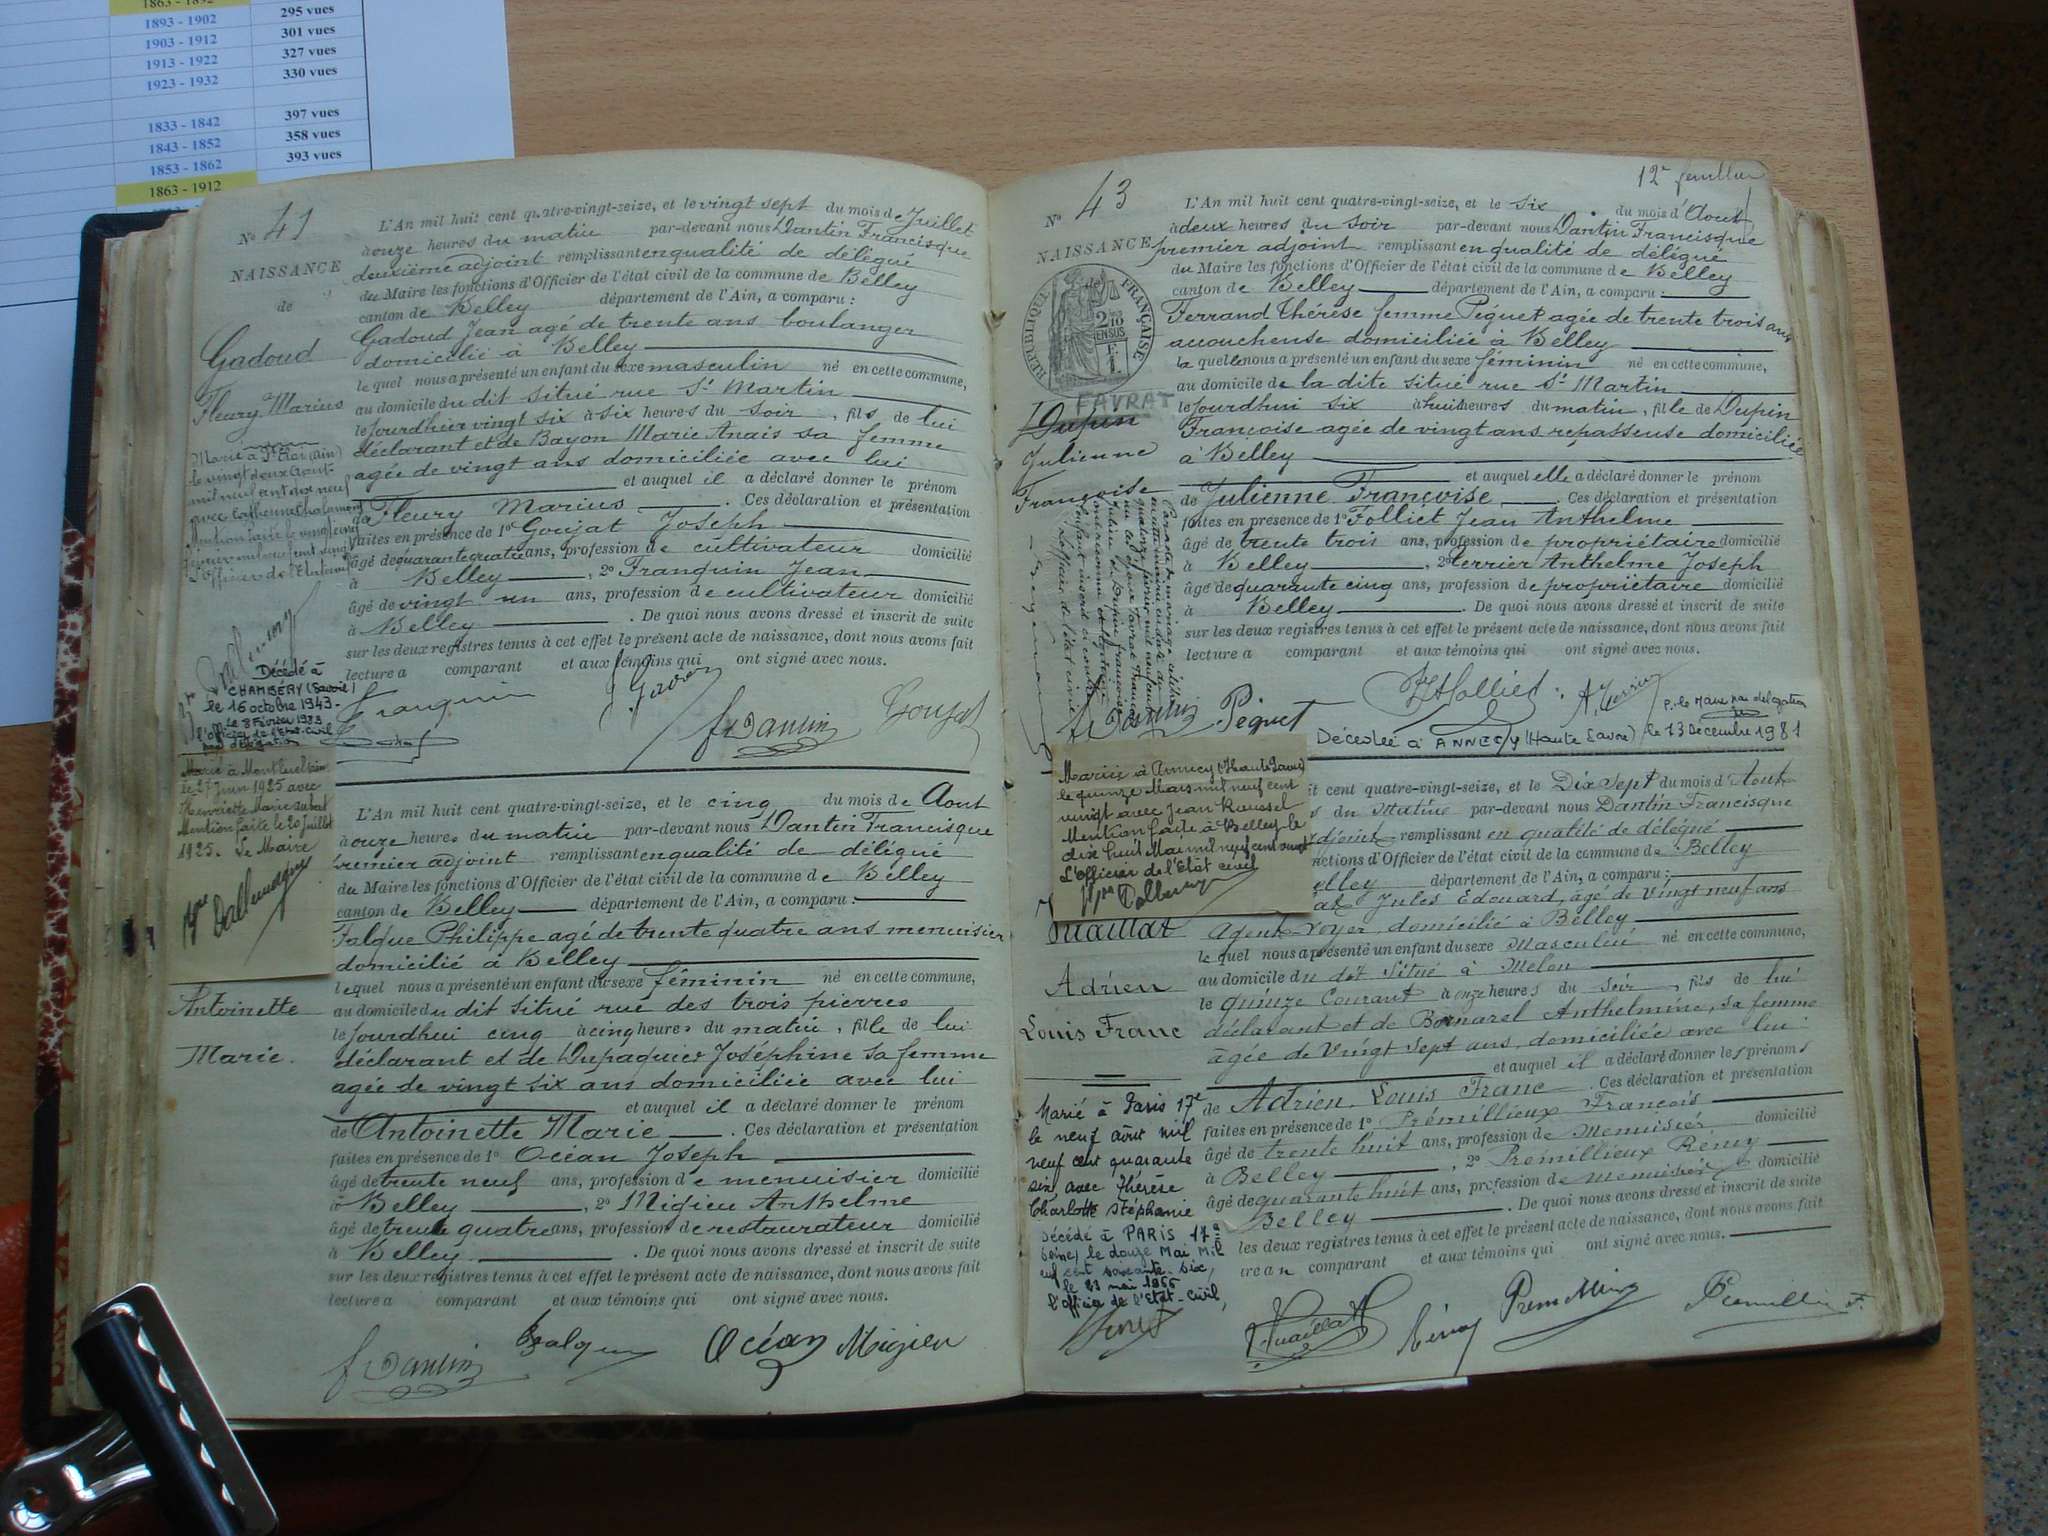 1863 - 1892
1893 - 1902 295 vues
1903 - 1912 301 vues
1913 - 1922 327 vues
1923 - 1932 330 vues
1833 - 1842 397 vues
1843 - 1852 358 vues
1853 - 1862 393 vues
1863 - 1912
No 41
NAISSANCE
de
Gadoud
Fleury Marius
le vingt deux Août
mil neuf cent dix neuf
Décédé à
CHAMBÉRY (Savoie)
le 16 octobre 1943.
Le 8 Février 1983
l'officier de l'Etat-Civil
par délégation
L'An mil huit cent quatre-vingt-seize, et le vingt sept du mois de Juillet
à onze heures du matin par-devant nous Dantin Francisque
deuxième adjoint remplissant en qualité de délégué
du Maire les fonctions d'Officier de l'état civil de la commune de Belley
canton de Belley département de l'Ain, a comparu :
Gadoud Jean agé de trente ans boulanger
domicilié à Belley
lequel nous a présenté un enfant du sexe masculin né en cette commune,
au domicile du dit situé rue St Martin
le jourdhier vingt six à six heures du soir, fils de lui
déclarant et de Bayon Marie Anaïs sa femme
agée de vingt ans domiciliée avec lui
et auquel il a déclaré donner le prénom
de Fleury Marius. Ces déclaration et présentation
faites en présence de 1° Goujat Joseph
âgé de quarante quatre ans, profession de cultivateur domicilié
à Belley, 2° Franquin Jean
âgé de vingt un ans, profession de cultivateur domicilié
à Belley. De quoi nous avons dressé et inscrit de suite
sur les deux registres tenus à cet effet le présent acte de naissance, dont nous avons fait
lecture a comparant et aux témoins qui ont signé avec nous.
Franquin
fr Dantin
Goujat
Marié à Montluel Ain
le 27 Juin 1925 avec
Henriette Marie
Mention faite le 20 Juillet
1925. Le Maire
Antoinette
Marie.
L'An mil huit cent quatre-vingt-seize, et le cinq du mois de Aout
à onze heures du matin par-devant nous Dantin Francisque
premier adjoint remplissant en qualité de délégué
du Maire les fonctions d'Officier de l'état civil de la commune de Belley
canton de Belley département de l'Ain, a comparu :
Falque Philippe agé de trente quatre ans menuisier
domicilié à Belley
lequel nous a présenté un enfant du sexe féminin né en cette commune,
au domicile du dit situé rue des trois pierres
le jourdhui cinq à cinq heures du matin, fille de lui
déclarant et de Dupaquier Joséphine sa femme
agée de vingt six ans domiciliée avec lui
et auquel il a déclaré donner le prénom
de Antoinette Marie. Ces déclaration et présentation
faites en présence de 1° Océan Joseph
âgé de trente neuf ans, profession de menuisier domicilié
à Belley, 2° Migieu Anthelme
âgé de trente quatre ans, profession de restaurateur domicilié
à Belley. De quoi nous avons dressé et inscrit de suite
sur les deux registres tenus à cet effet le présent acte de naissance, dont nous avons fait
lecture a comparant et aux témoins qui ont signé avec nous.
fr Dantin Falque Océan Migieu
12e feuillet
No 43
NAISSANCE
RÉPUBLIQUE FRANÇAISE
FAVRAT
Dupin
Julienne
Françoise
L'An mil huit cent quatre-vingt-seize, et le six du mois d'Aout
à deux heures du soir par-devant nous Dantin Francisque
premier adjoint remplissant en qualité de délégué
du Maire les fonctions d'Officier de l'état civil de la commune de Belley
canton de Belley département de l'Ain, a comparu :
Ferrand Thérèse femme Péguet agée de trente trois ans
accoucheuse domiciliée à Belley
la quelle nous a présenté un enfant du sexe féminin né en cette commune,
au domicile de la dite situé rue St Martin
le jourdhui six à huit heures du matin, fille de Dupin
Françoise agée de vingt ans repasseuse domiciliée
à Belley
et auquel elle a déclaré donner le prénom
de Julienne Françoise. Ces déclaration et présentation
faites en présence de 1° Folliet Jean Anthelme
âgé de trente trois ans, profession de propriétaire domicilié
à Belley, 2° Perrier Anthelme Joseph
âgé de quarante cinq ans, profession de propriétaire domicilié
à Belley. De quoi nous avons dressé et inscrit de suite
sur les deux registres tenus à cet effet le présent acte de naissance, dont nous avons fait
lecture a comparant et aux témoins qui ont signé avec nous.
fr Dantin Péguet
P. le Maire par délégation
Décédée à ANNECY (Haute Savoie) le 13 Décembre 1981
Mariée à Annecy (Haute Savoie)
le quinze Mars mil neuf cent
vingt avec Jean Roussel
Mention faite à Belley le
dix huit Mai mil neuf cent vingt
L'Officier de l'Etat civil
Vuaillat
Adrien
Louis Franc
Marié à Paris 17e
le neuf août mil
neuf cent quarante
six, avec Thérèse
Charlotte Stéphanie
Décédé à PARIS 17e
(Seine) le douze Mai Mil
neuf cent soixante-six,
le 23 mai 1966
l'officier de l'Etat-Civil,
it cent quatre-vingt-seize, et le Dix Sept du mois d'Aout
s du Matin par-devant nous Dantin Francisque
adjoint remplissant en qualité de délégué
nctions d'Officier de l'état civil de la commune de Belley
elley département de l'Ain, a comparu :
at Jules Edouard, agé de Vingt neuf ans
Agent-Voyer, domicilié à Belley
lequel nous a présenté un enfant du sexe Masculin né en cette commune,
au domicile du dit Situé à Melon
le quinze Courant à onze heures du soir, fils de lui
déclarant et de Bornarel Anthelmine, sa femme
âgée de Vingt Sept ans, domiciliée avec lui
et auquel il a déclaré donner les prénoms
de Adrien Louis Franc. Ces déclaration et présentation
faites en présence de 1° Prémillieux François
âgé de trente huit ans, profession de Menuisier domicilié
à Belley, 2° Prémillieux Rémy
âgé de quarante huit ans, profession de Menuisier domicilié
Belley. De quoi nous avons dressé et inscrit de suite
les deux registres tenus à cet effet le présent acte de naissance, dont nous avons fait
ture au comparant et aux témoins qui ont signé avec nous.
Vuaillat